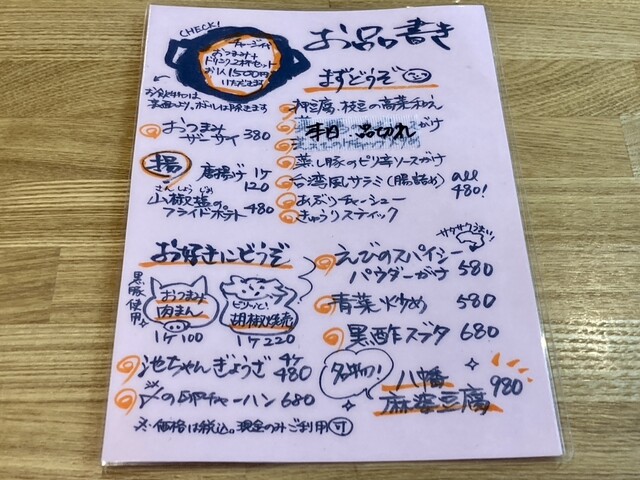 CHECK!
チャージ料
おつまみ+
ドリンク2杯セット
お1人1500円
いただきます
お品書き
まずどうぞ
おつまみ
ザーサイ 380
揚
唐揚げ 1ケ
120
さんしょう
山椒葉の
フライドポテト 480
押豆腐・枝豆の高菜和え
がけ
本日・品切れ
蒸し豚のピリ辛ソースがけ
台湾風サラミ(腸詰め)
あぶりチャーシュー
きゅうりスティック
all
480!
お好きにどうぞ
黒豚使用
おつまみ
肉まん
1ケ100
ピリッと
胡椒焼売
1ケ220
池ちゃんぎょうざ 4ケ
480
〆の卵チャーハン 680
サクサクうまい!
えびのスパイシー
パウダーがけ 580
青菜炒め 580
黒酢スブタ 680
名物!
八幡
麻婆豆腐 980
※価格は税込。現金のみご利用可